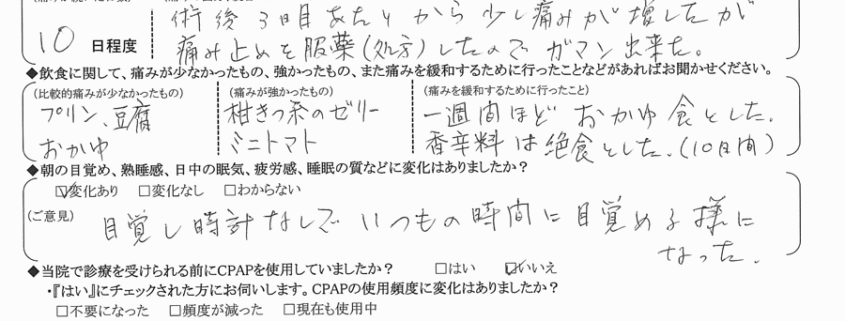 術後3日目あたりから少し痛みが増したが
10日程度
痛み止めを服薬(処方)したのでガマン出来た。
◆飲食に関して、痛みが少なかったもの、強かったもの、また痛みを緩和するために行ったことなどがあればお聞かせください。
(比較的痛みが少なかったもの)
プリン、豆腐
おかゆ
(痛みが強かったもの)
柑きつ系のゼリー
ミニトマト
(痛みを緩和するために行ったこと)
一週間ほどおかゆ食とした。
香辛料は絶食とした。(10日間)
◆朝の目覚め、熟睡感、日中の眠気、疲労感、睡眠の質などに変化はありましたか?
☑変化あり □変化なし □わからない
(ご意見)
目覚し時計なしでいつもの時間に目覚める様に
なった。
◆当院で診療を受けられる前にCPAPを使用していましたか? □はい ☑いいえ
・『はい』にチェックされた方にお伺いします。CPAPの使用頻度に変化はありましたか?
□不要になった □頻度が減った □現在も使用中